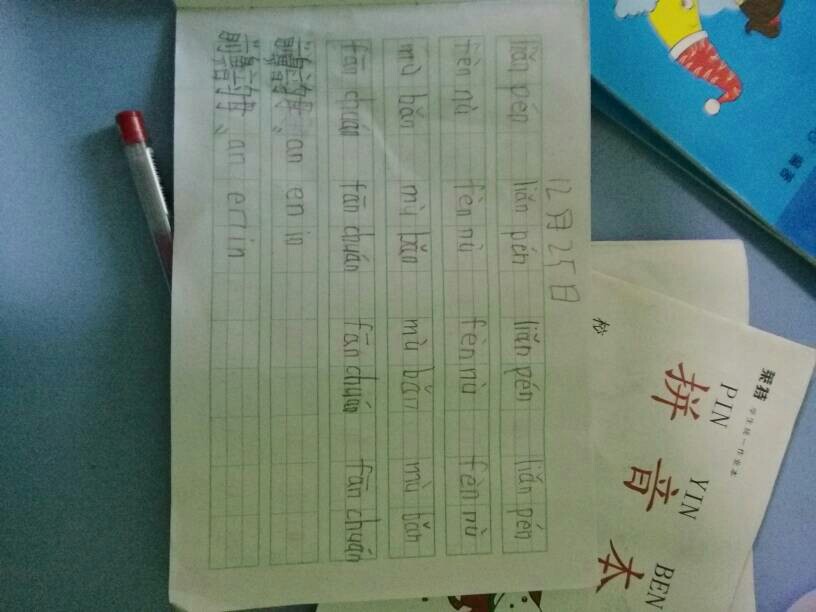 12月25日
liǎn pén liǎn pén liǎn pén liǎn pén
fèn nù fèn nù fèn nù fèn nù
mù bǎn mù bǎn mù bǎn mù bǎn
fān chuán fān chuán fān chuán fān chuán
前鼻韵母、an en in
前鼻韵母、an en in
PIN YIN BEN
拼音本
学生统一作业本
松
编著